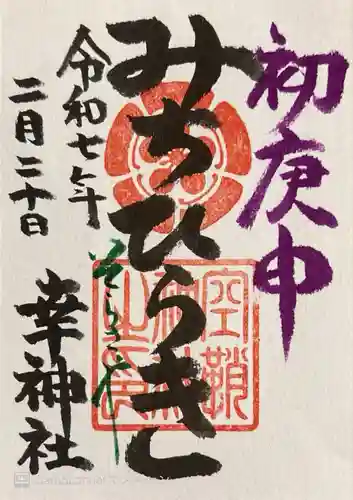 初庚申
みちひらき
令和七年
二月二十日
幸神社